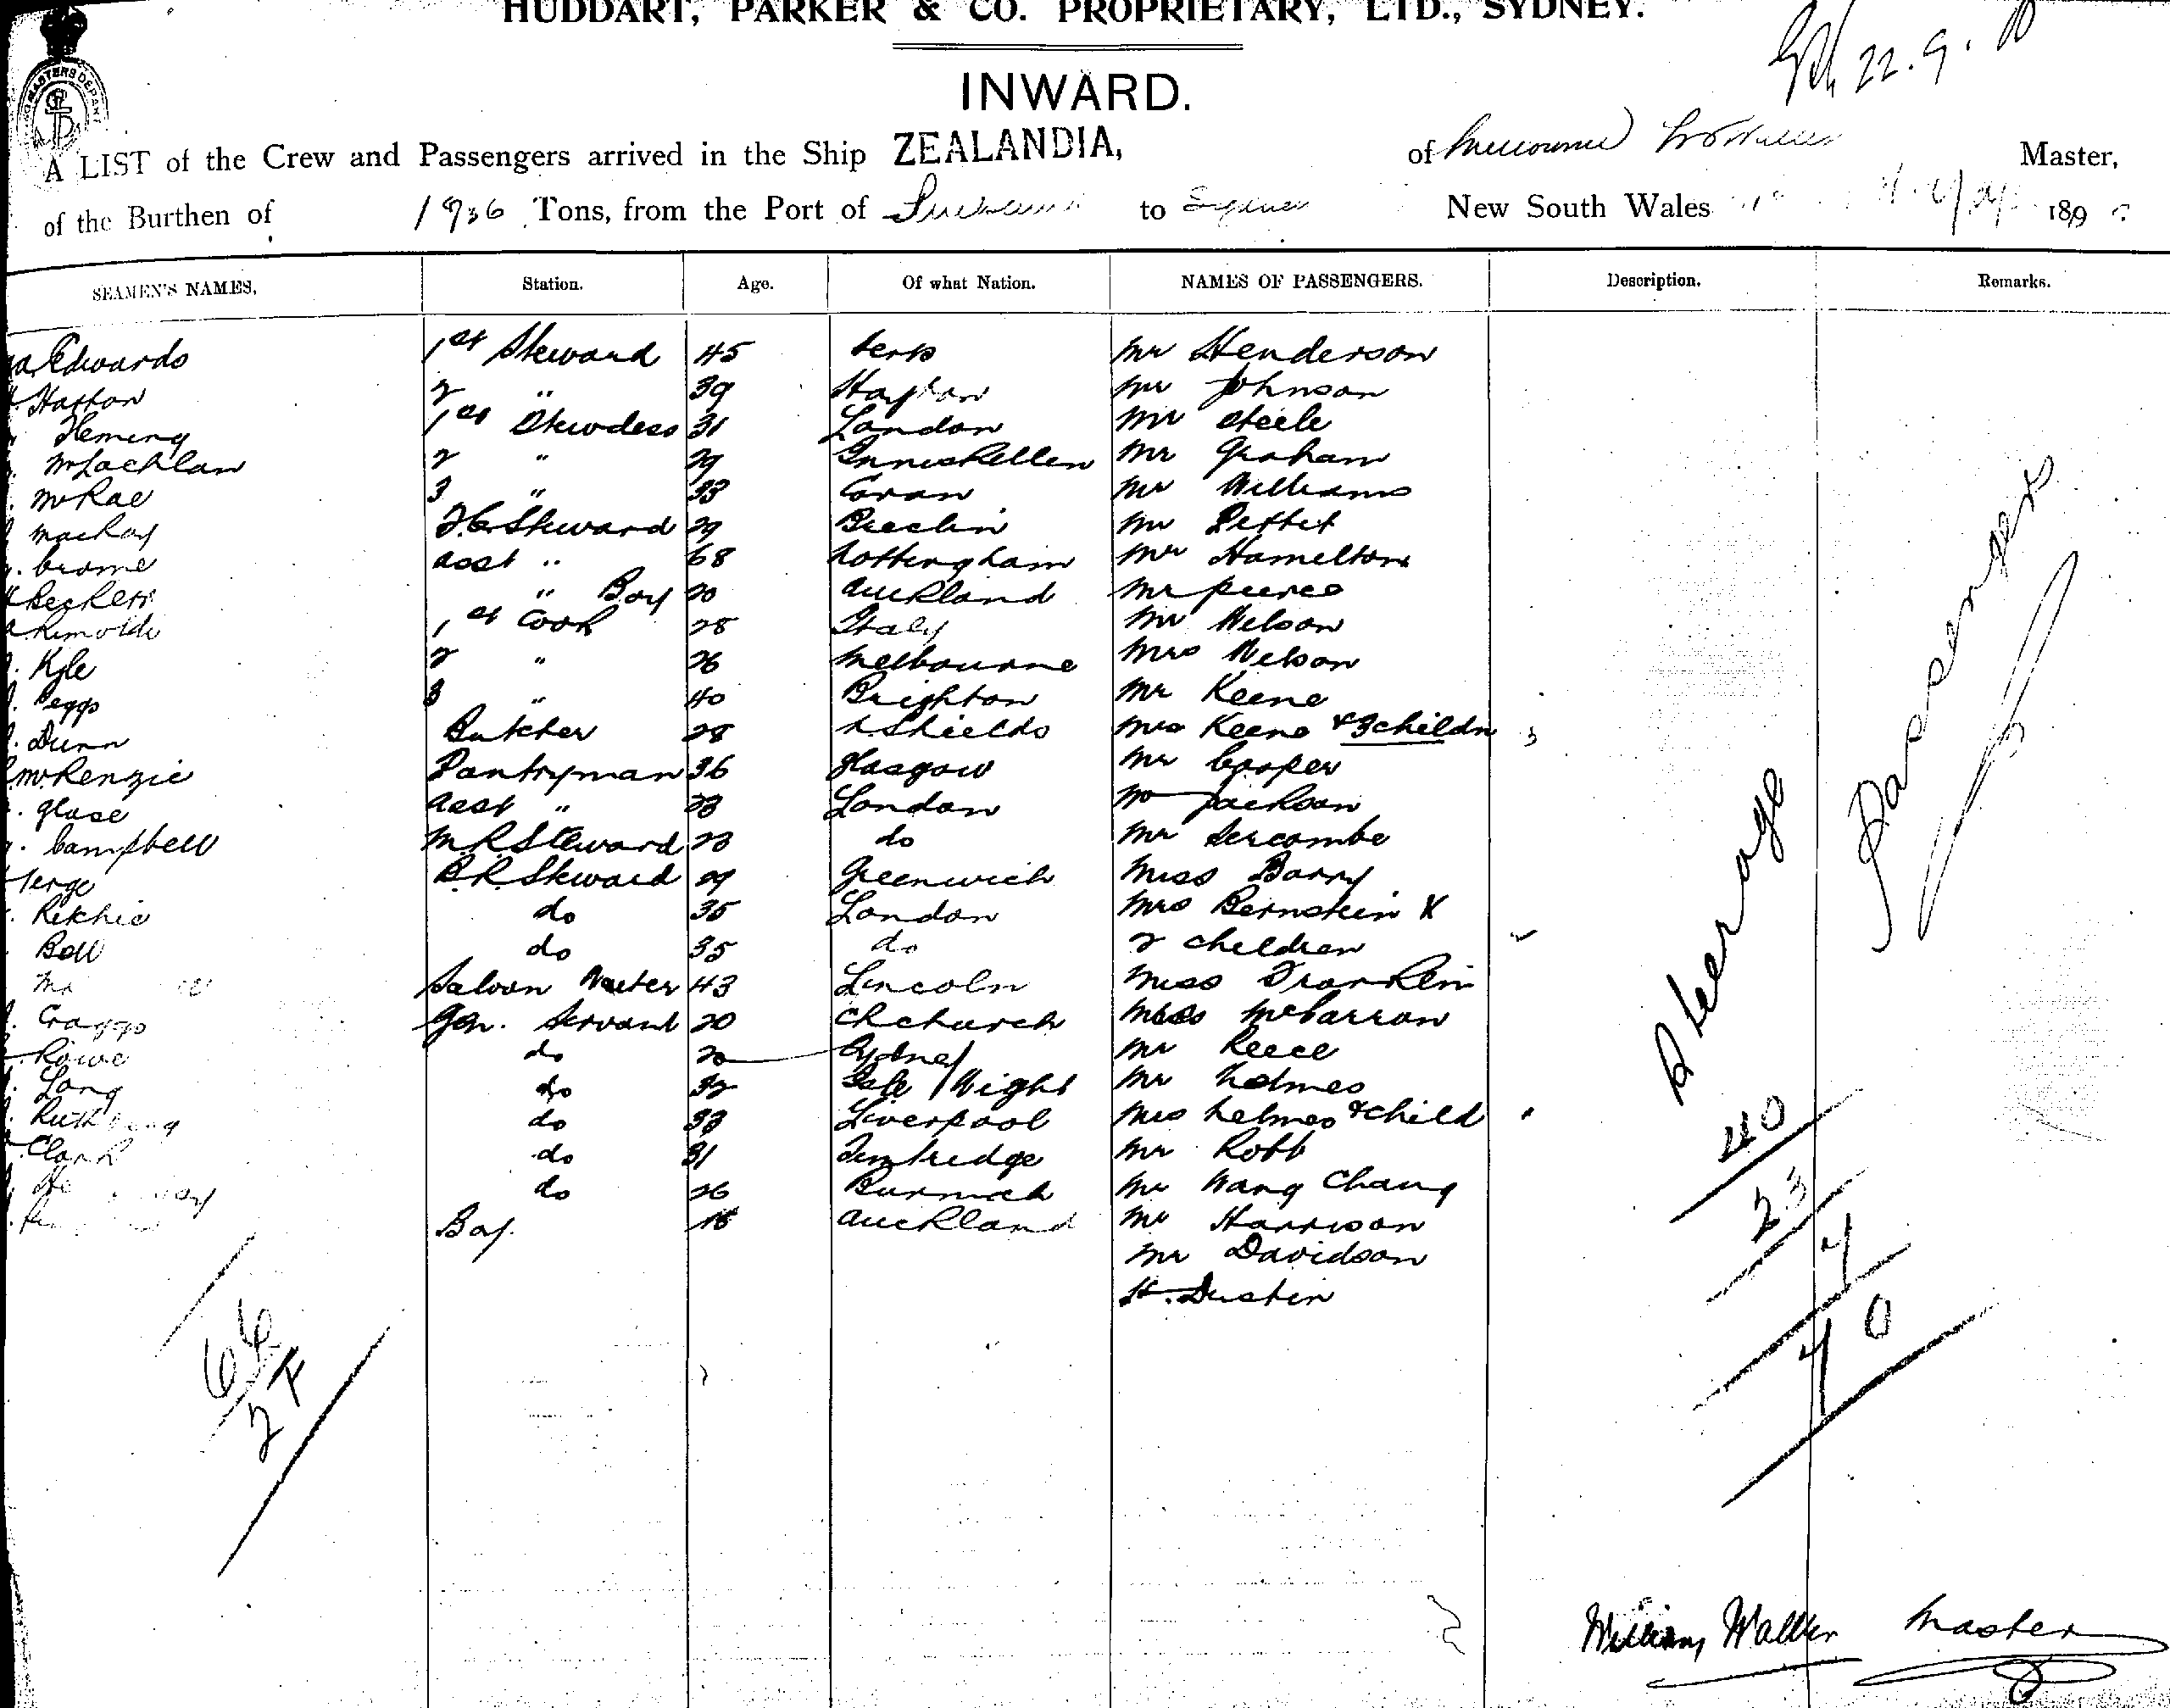 HUDDART, PARKER & CO. PROPRIETARY, LTD., SYDNEY.
22.9.
INWARD.
A LIST of the Crew and Passengers arrived in the Ship ZEALANDIA, of Master,
of the Burthen of 1936 Tons, from the Port of to Sydney New South Wales 189
SEAMEN'S NAMES. Station. Age. Of what Nation. NAMES OF PASSENGERS. Description. Remarks.
Edwards 1st Steward 45 Mr Henderson
Hatton 2 " 39 Mr Johnson
Fleming 1st Stewdess 31 London Mr Steele
McLachlan 2 " 29 Inniskellen Mr Graham
McRae 3 " 33 Mr Williams
Mackay Steward 29 Brechin Mr Pettet
Crome asst " 68 Nottingham Mr Hamelton
Beckett " Boy 20 Auckland Mr Pierce
1st Cook 28 Italy Mr Nelson
Kyle 2 " 26 Melbourne Mrs Nelson
Peggs 3 " 40 Brighton Mr Keene
Dunn Butcher 28 N. Shields Mrs Keene & 3 childn 3
McKenzie Pantryman 36 Glasgow Mr Cooper
Glase asst " 23 London Jackson
Campbell M.R. Steward 23 do Mr Sercombe
B.R. Steward 29 Greenwich Miss Barry
Ritchie do 35 London Mrs Bernstein &
Bell do 35 do 2 children
Saloon Waiter 43 Lincoln Miss Franklin
Craggs Gen. Servant 20 Chchurch Miss McCarron
Rowe do 20 Sydney Mr Reece
Lang do 32 Isle Wight Mr Holmes
do 33 Liverpool Mrs Holmes & child
Clark do 31 Mr Robb
do 26 Mr Wang Chang
Boy 16 Auckland Mr Harrison
Mr Davidson
H. Dustin
Steerage Passengers
40
23
7
70
66
2 F
William Waller Master